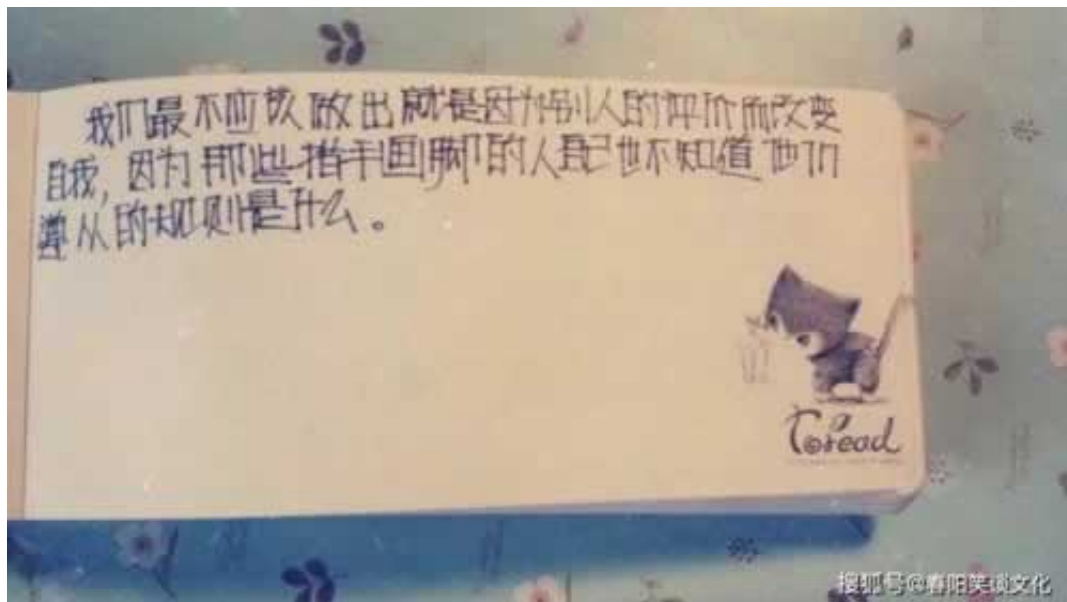 我们最不应该做出就是因为别人的评价而改变
自我，因为那些指手画脚的人自己也不知道他们
遵从的规则是什么。
Toread
搜狐号@春阳笑谈文化